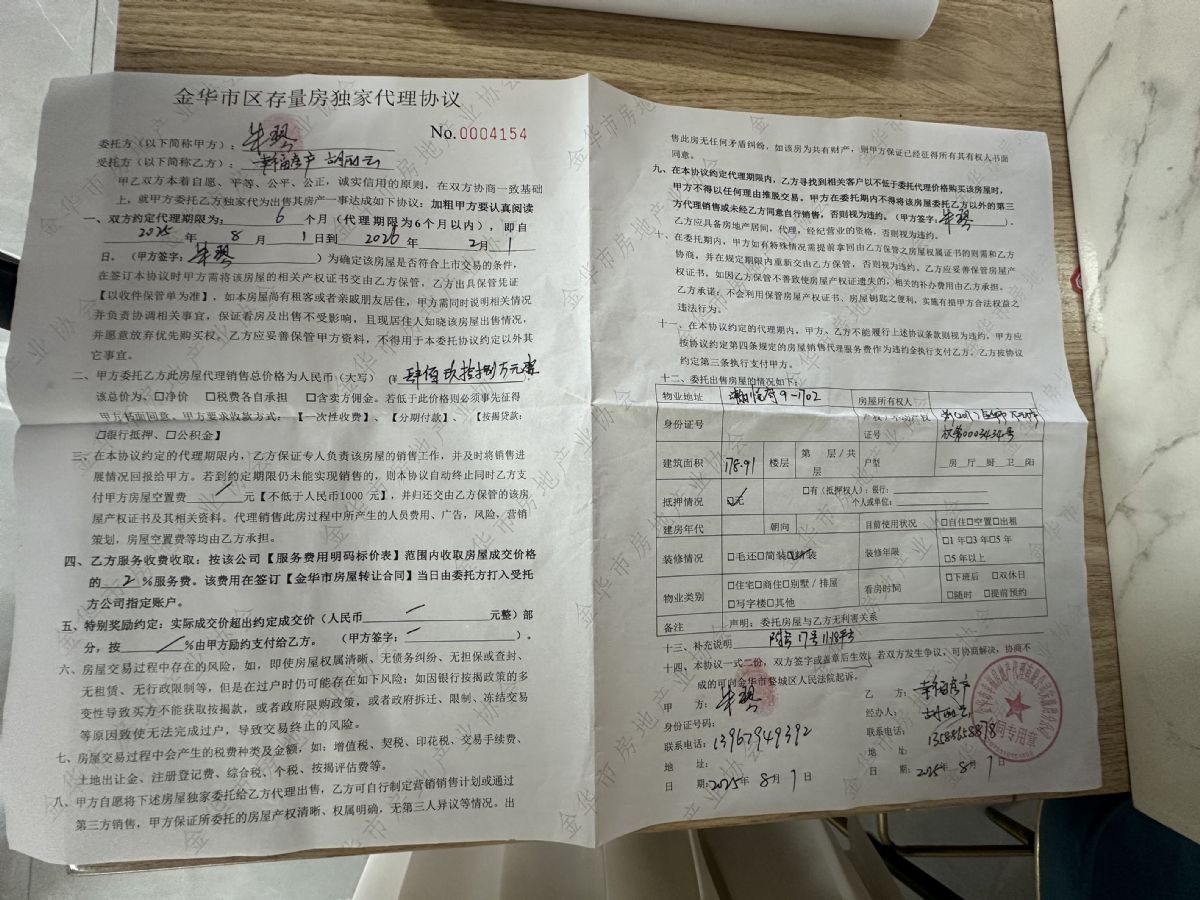 金华市区存量房独家代理协议
No.0004154
委托方（以下简称甲方）：朱琴
受托方（以下简称乙方）：幸福房产
甲乙双方本着自愿、平等、公平、公正，诚实信用的原则，在双方协商一致基础
上，就甲方委托乙方独家代为出售其房产一事达成如下协议：加粗甲方要认真阅读
一、双方约定代理期限为 6 个月（代理期限为6个月以内），即自
2025 年 8 月 1日到 2026 年 2月 1
日。（甲方签字：朱琴）为确定该房屋是否符合上市交易的条件，
在签订本协议时甲方需将该房屋的相关产权证书交由乙方保管，乙方出具保管凭证
【以收件保管单为准】，如本房屋尚有租客或者亲戚朋友居住，甲方需同时说明相关情况
并负责协调相关事宜，保证看房及出售不受影响，且现居住人知晓该房屋出售情况，
并愿意放弃优先购买权。乙方应妥善保管甲方资料，不得用于本委托协议约定以外其
它事宜。
二、甲方委托乙方此房屋代理销售总价格为人民币（大写）（¥肆佰玖拾捌万元整
该总价为、□净价 □税费各自承担 □含卖方佣金。若低于此价格则必须事先征得
甲方书面同意。甲方要求收款方式：【一次性收费】、【分期付款】、【按揭贷款：
□银行抵押、□公积金】
三、在本协议约定的代理期限内，乙方保证专人负责该房屋的销售工作，并及时将销售进
展情况回报给甲方。若到约定期限仍未能实现销售的，则本协议自动终止同时乙方支
付甲方房屋空置费 / 元【不低于人民币1000 元】，并归还交由乙方保管的该房
屋产权证书及其相关资料。代理销售此房过程中所产生的人员费用、广告，风险，营销
策划，房屋空置费等均由乙方承担。
四、乙方服务收费收取：按该公司【服务费用明码标价表】范围内收取房屋成交价格
的 2 %服务费。该费用在签订【金华市房屋转让合同】当日由委托方打入受托
方公司指定账户。
五、特别奖励约定：实际成交价超出约定成交价（人民币 / 元整）部
分，按 / %由甲方励约支付给乙方。（甲方签字：/ ）。
六、房屋交易过程中存在的风险，如，即使房屋权属清晰、无债务纠纷、无担保或查封、
无租赁、无行政限制等，但是在过户时仍可能存在如下风险：如因银行按揭政策的多
变性导致买方不能获取按揭款，或者政府限购政策，或者政府拆迁、限制、冻结交易
等原因致使无法完成过户，导致交易终止的风险。
七、房屋交易过程中会产生的税费种类及金额，如：增值税、契税、印花税、交易手续费、
土地出让金、注册登记费、综合税、个税、按揭评估费等。
八、甲方自愿将下述房屋独家委托给乙方代理出售，乙方可自行制定营销销售计划或通过
第三方销售，甲方保证所委托的房屋产权清晰、权属明确，无第三人异议等情况。出
售此房无任何矛盾纠纷，如该房为共有财产，则甲方保证已经征得所有其有权人书面
同意。
九、在本协议约定代理期限内，乙方寻找到相关客户以不低于委托代理价格购买该房屋时，
甲方不得以任何理由推脱交易。甲方在委托期内不得将该房屋委托乙方以外的第三
方代理销售或未经乙方同意自行销售，否则视为违约。（甲方签字：朱琴）.
乙方应具备房地产居间，代理，经纪营业的资格，否则视为违约。
十、在委托期内，甲方如有特殊情况需提前拿回由乙方保管之房屋权属证书的则需和乙方
协商，并在规定期限内重新交由乙方保管，否则视为违约。乙方应妥善保管房屋产
权证书，如因乙方保管不善致使房屋产权证遗失的，相关的补办费用由乙方承担。
乙方承诺：不会利用保管房屋产权证书、房屋钥匙之便利，实施有损甲方合法权益之
违法行为。
十一、在本协议约定的代理期内，甲方、乙方不能履行上述协议条款则视为违约，甲方应
按协议约定第四条规定的房屋销售代理服务费作为违约金执行支付乙方，乙方按协议
约定第三条执行支付甲方。
十二、委托出售房屋的情况如下：
物业地址 9-1702 房屋所有权人
身份证号 产权/不动产权证号 第0003434号
建筑面积 178.91 楼层 第 层/共 层 户型 房 厅 厨 卫 阳
抵押情况 □无 □有（抵押权人）：银行： 个人或单位：
建房年代 朝向 目前使用状况 □自住□空置□出租
装修情况 □毛还□简装□精装 装修年限 □1年□3年□5年 □5年以上
物业类别 □住宅□商住□别墅/排屋 □写字楼□其他 看房时间 □下班后 □双休日 □随时 □提前预约
备注 声明：委托房屋与乙方无利害关系
十三、补充说明
十四、本协议一式二份，双方签字或盖章后生效，若双方发生争议，可协商解决，协商不
成的可向金华市婺城区人民法院起诉。
甲 方：朱琴
身份证号码：
联系电话：13967949392
地 址：
日 期：2025年 8月 1日
乙 方：幸福房产
经办人：
联系电话：
地 址：
日 期：2025年 8月 1日
合同专用章
金华市房地产业协会